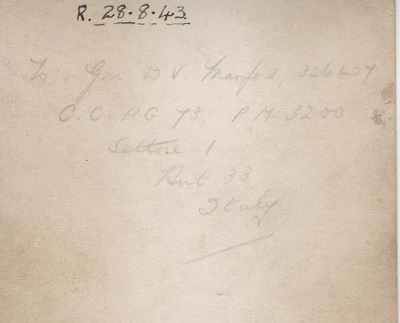 R. 28·8·43.
To:- Gnr D V. 326407
C.C. P.G 73. P.M. 3200
Settore 1
Hut 33
Italy